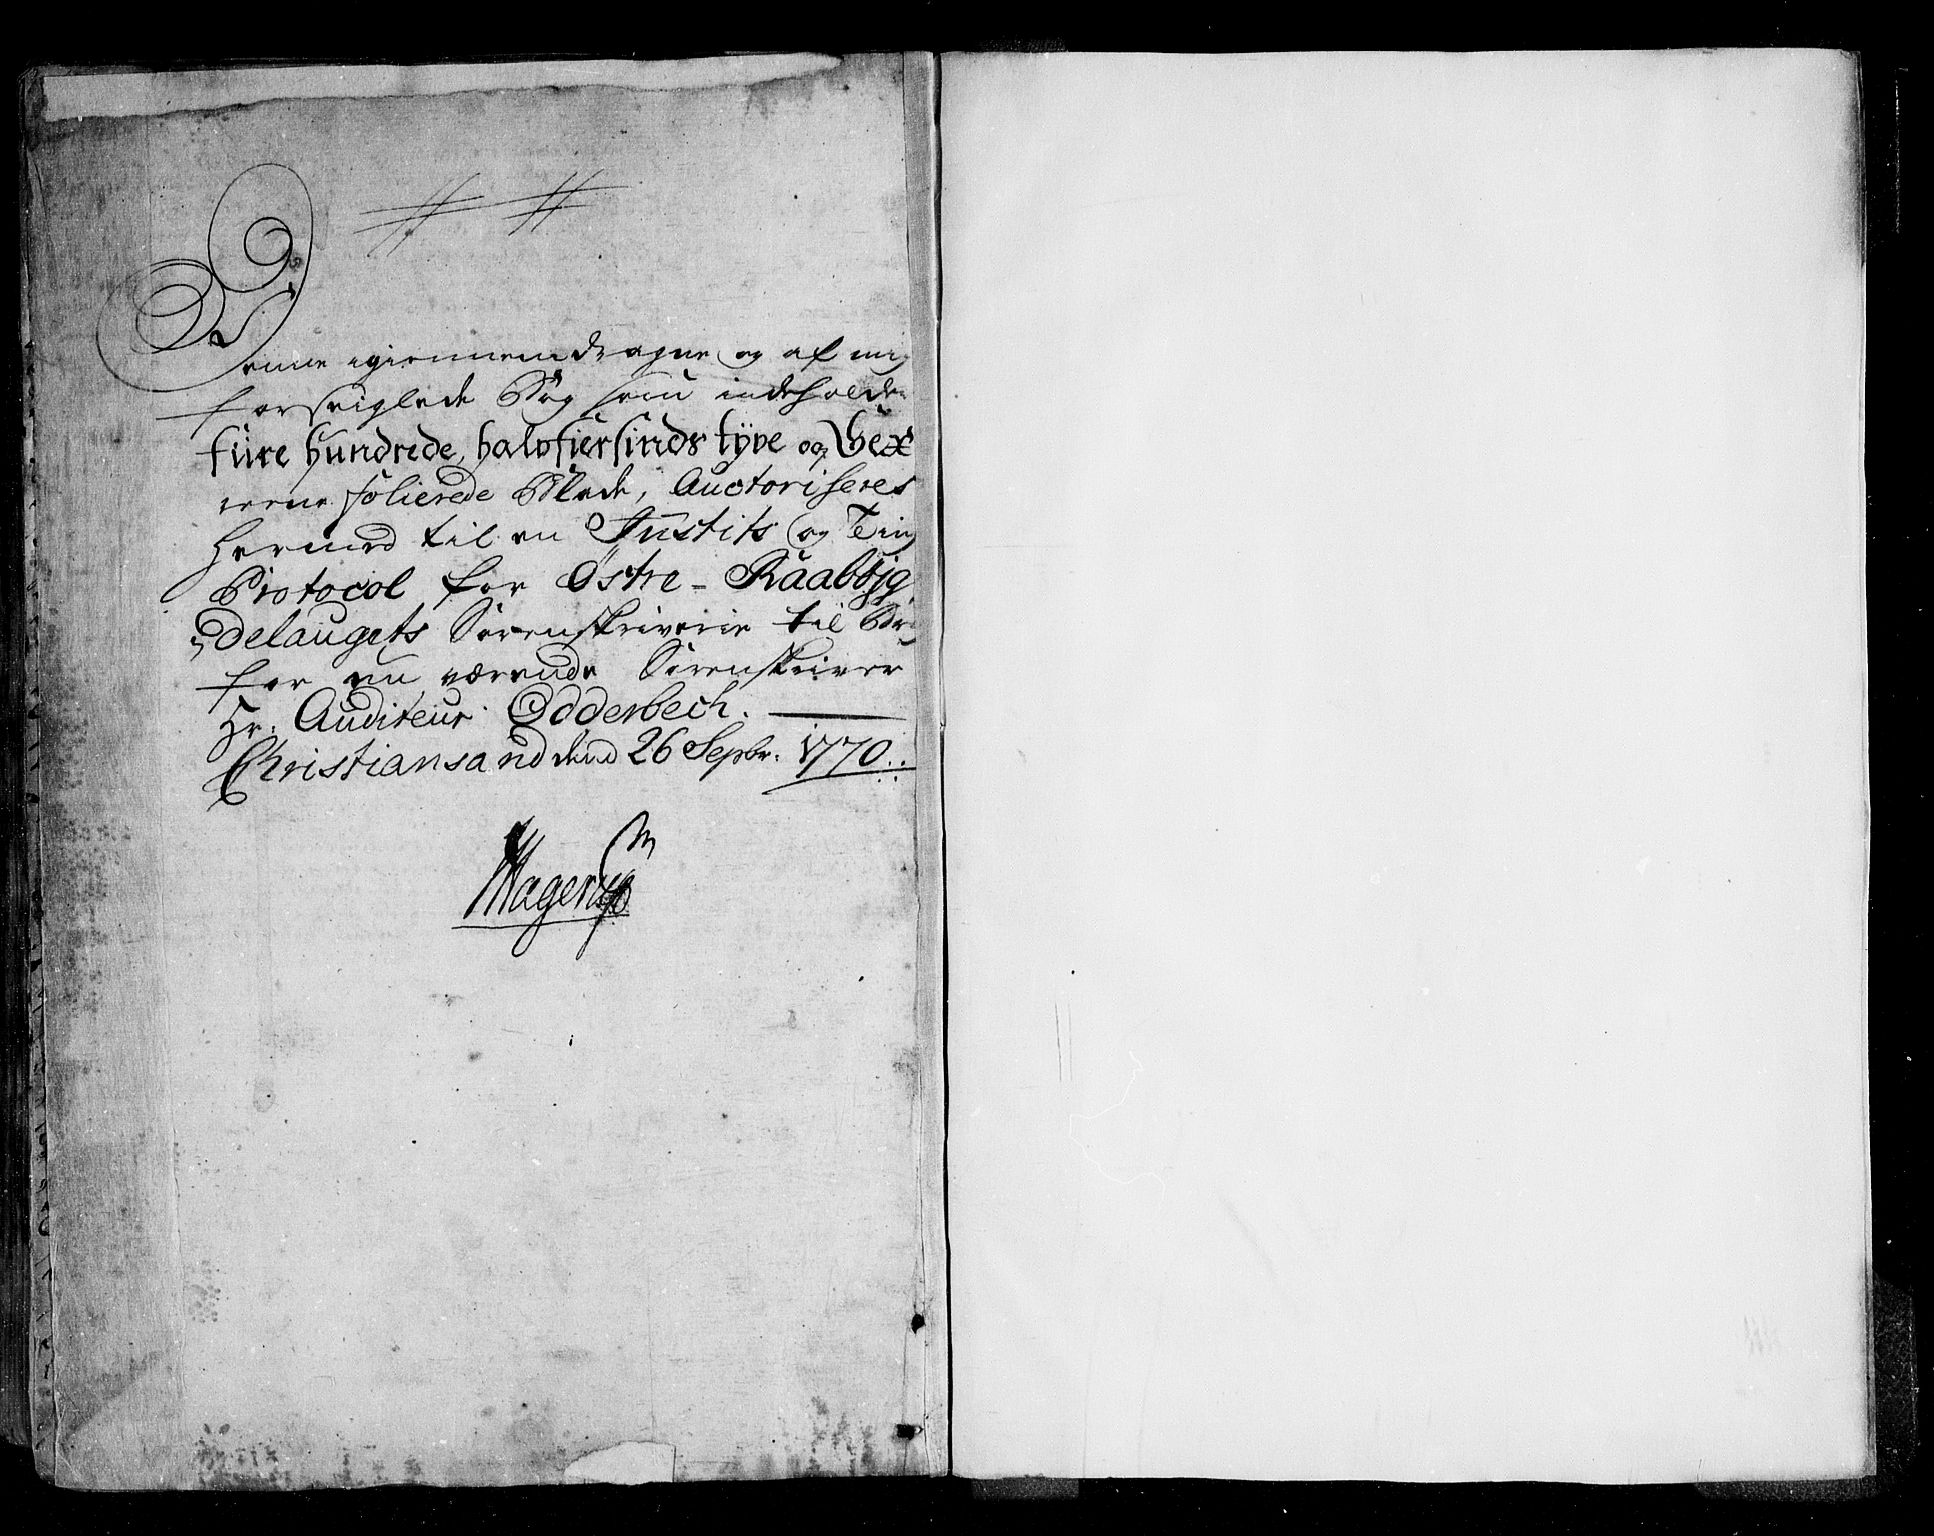 Denne igiennemdragne og af mig
forseiglede Bog som indeholder
fiire hundrede, halvfiersinds tyve og Sex
reene folierede Blade, Auctoriseres
hermed til en Justits og Ting
Protocol for Østre-Raabøjg
delaugets Sorenskriverie til Brug
for nu værende Sorenskriver
Hr: Auditeur Odderbech.
Christiansand dend 26 Sepbr: 1770.
Hagerup